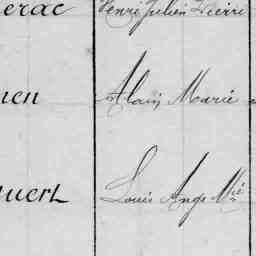 erac Henri Julien Pierre
nen Alain Marie
quert Louis Ange Mie